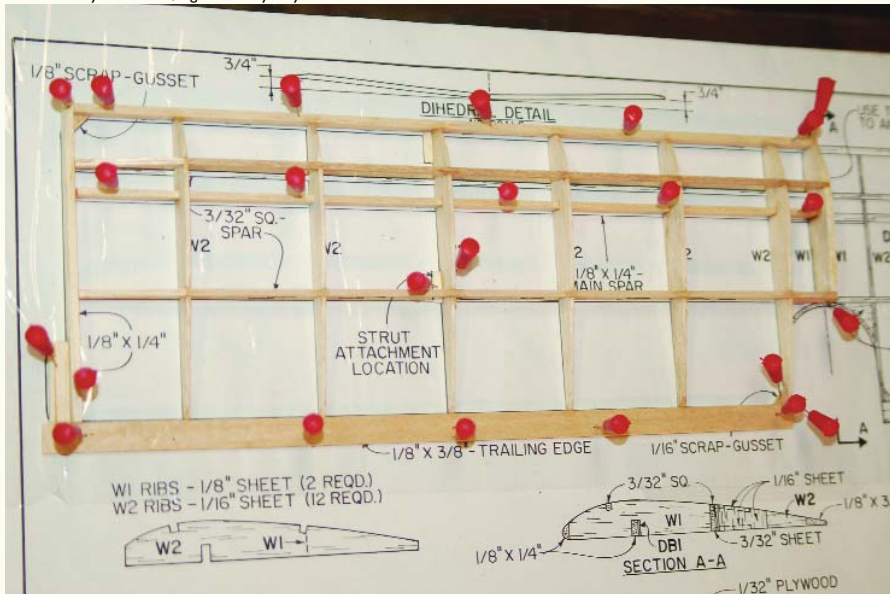 3/4"
1/8" SCRAP-GUSSET
3/4"
DIHEDRAL DETAIL
A
USE
TO
3/32" SQ.-
SPAR
W2
W2
2
1/8" X 1/4"-
MAIN SPAR
2
W2
W1
W1
W2
1/8" X 1/4"
STRUT
ATTACHMENT
LOCATION
A
1/8" X 3/8"-TRAILING EDGE
1/16" SCRAP-GUSSET
W1 RIBS - 1/8" SHEET (2 REQD.)
W2 RIBS - 1/16" SHEET (12 REQD.)
3/32" SQ.
1/16" SHEET
W2
1/8" X 3
W1
W2
W1
1/8" X 1/4"
DB1
3/32" SHEET
SECTION A-A
1/32" PLYWOOD